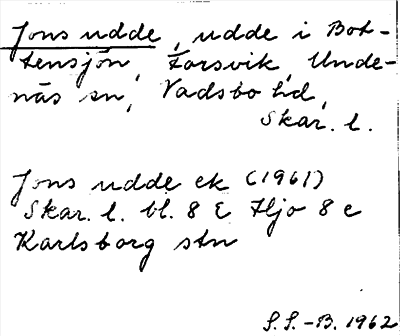 Jons udde, udde i Bot-
tensjön, Forsvik, Unde-
näs sn, Vadsbo hd,
Skar. l.
Jons udde ek (1961)
Skar. l. bl. 8 E Hjo 8 e
Karlsborg stn
S.S.-B. 1962